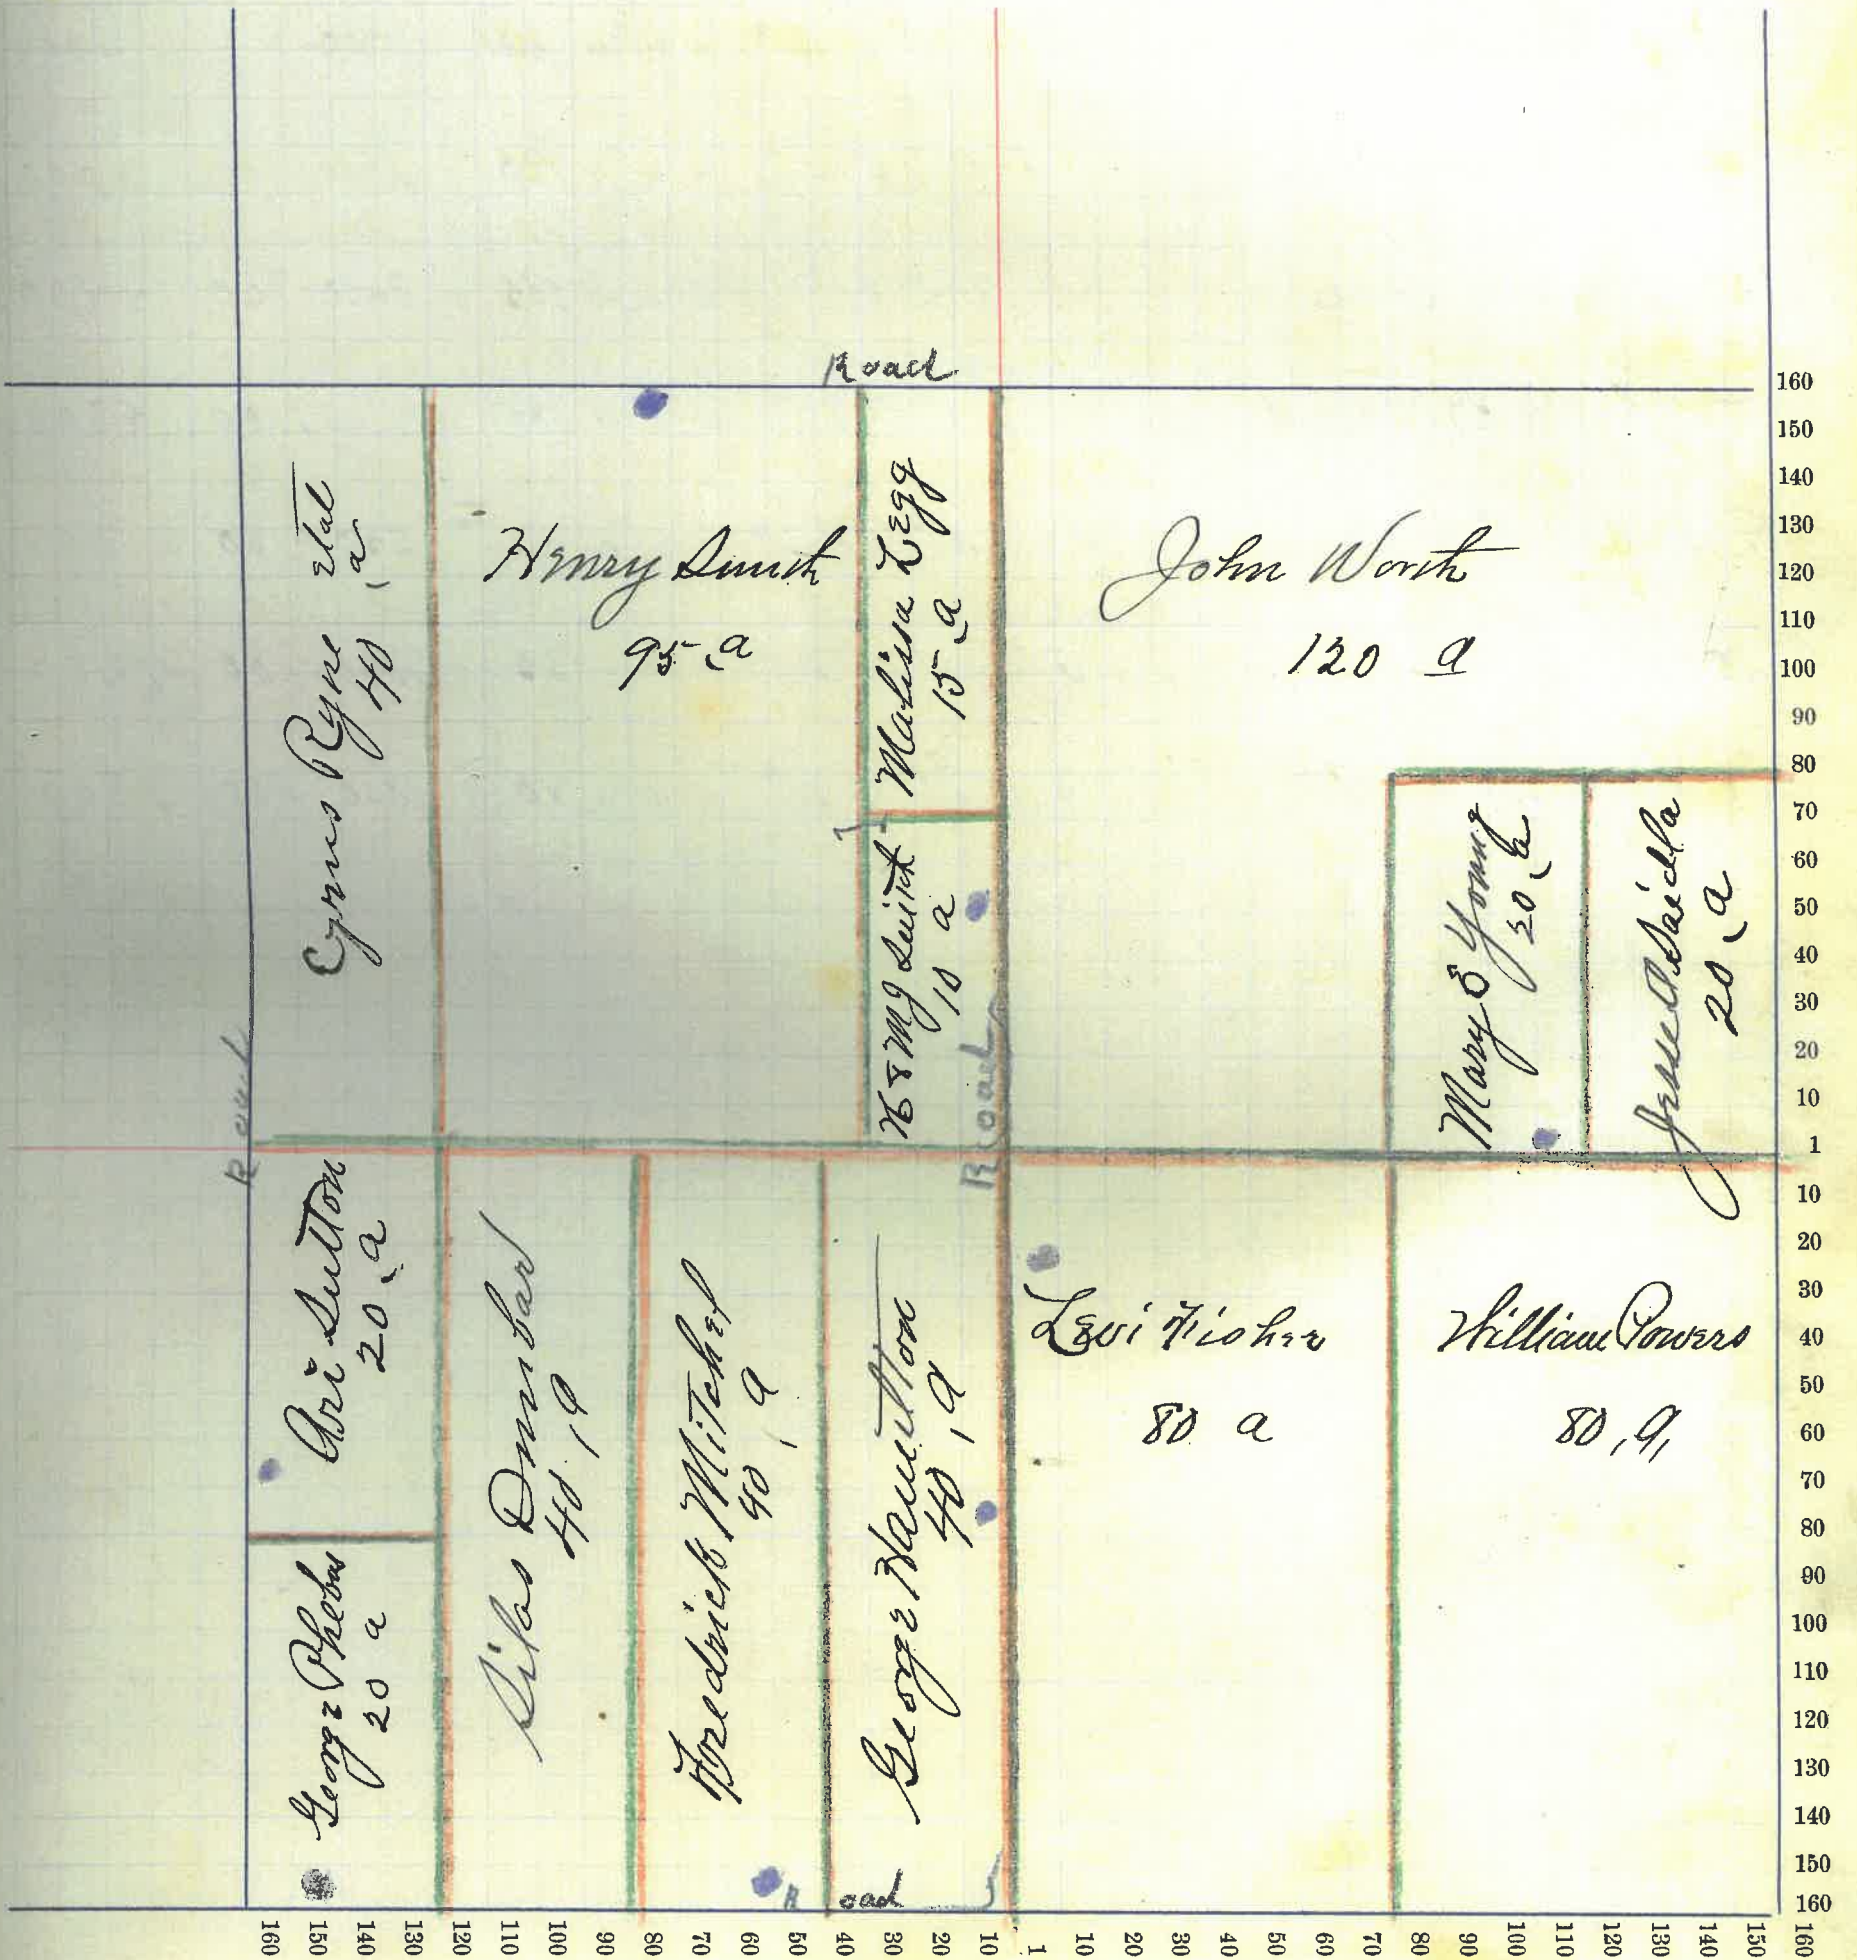 Road
Cyrus Ryne etal
40, a
Henry Smith
95, a
Malissa Legg
15, a
H & M J Smith
10 a
John Worth
120 a
Mary E Young
20, a
20, a
Road
Road
Ari Sutton
20, a
George Phebus
20 a
Silas Dunbar
40, a
Fredrick Mitchel
40, a
George Hamilton
40, a
Levi Fisher
80 a
William Powers
80, a,
Road
160
150
140
130
120
110
100
90
80
70
60
50
40
30
20
10
1
10
20
30
40
50
60
70
80
90
100
110
120
130
140
150
160
160 150 140 130 120 110 100 90 80 70 60 50 40 30 20 10 1 10 20 30 40 50 60 70 80 90 100 110 120 130 140 150 160